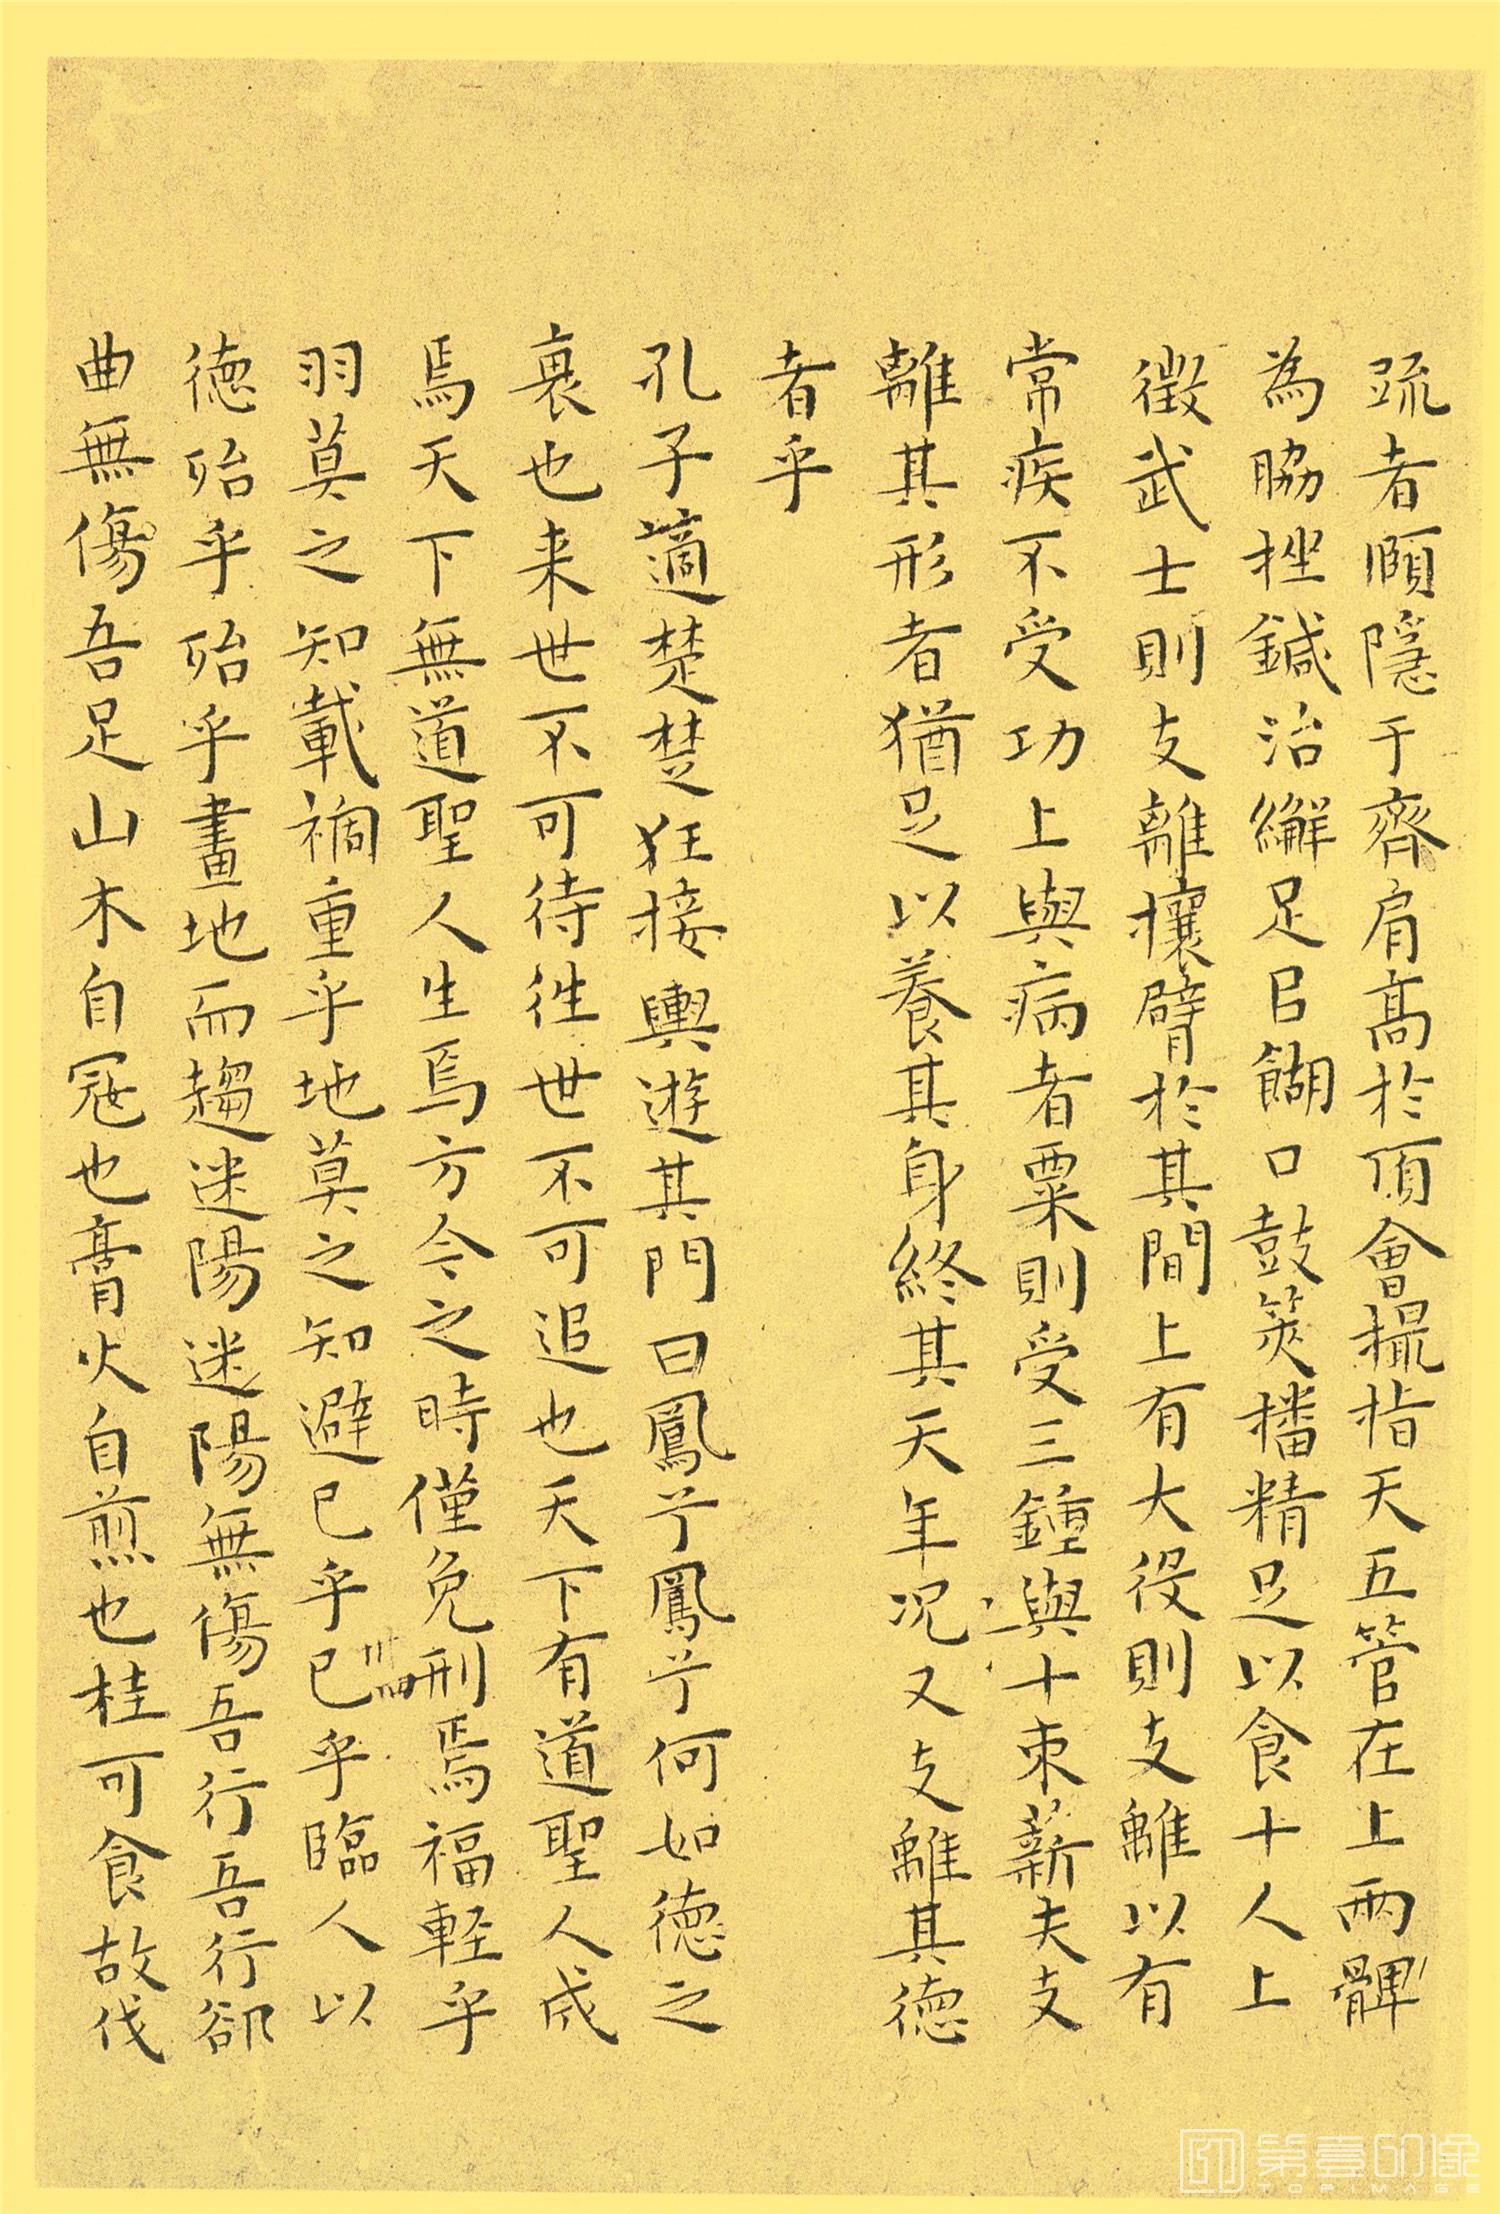 疏者頤隱于齊肩高於頂會撮指天五管在上兩髀
為脇挫鍼治繲足㠯餬口鼓筴播精足以食十人上
徵武士則支離攘臂於其間上有大役則支離以有
常疾不受功上與病者粟則受三鍾與十束薪夫支
離其形者猶足以養其身終其天年況又支離其德
者乎
孔子適楚楚狂接輿遊其門曰鳳兮鳳兮何如德之
衰也来世不可待徃世不可追也天下有道聖人成
焉天下無道聖人生焉方今之時僅免刑焉福輕乎
羽莫之知載禍重乎地莫之知避已乎已乎臨人以
德殆乎殆乎畫地而趨迷陽迷陽無傷吾行吾行郤
曲無傷吾足山木自寇也膏火自煎也桂可食故伐
卌四
第壹印像
TOPIMAGE